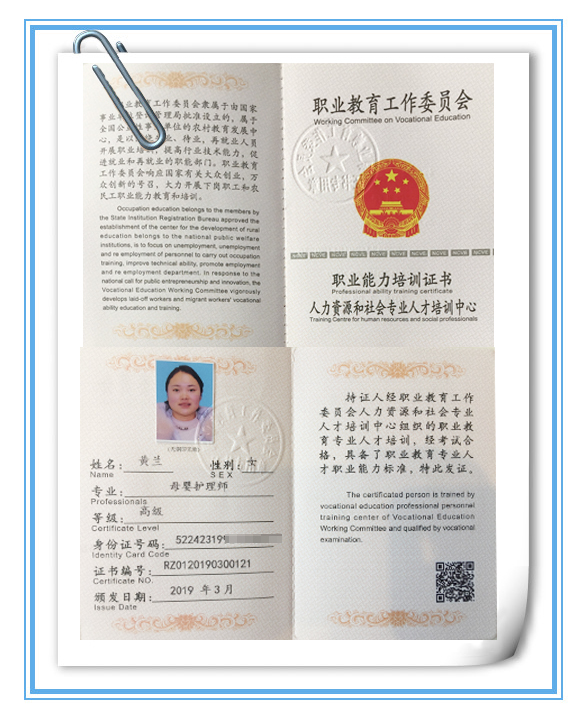 业教育工作委员会隶属于由国家
事业单位登记管理局批准设立的，属于
全国公益性事业单位的农村教育发展中
心，是以
业、待业、再就业人员
开展职业培训，提高行业技术能力，促
进就业和再就业的职能部门。职业教育
工作委员会响应国家有关大众创业，万
众创新的号召，大力开展下岗职工和农
民工职业能力教育和培训。
Occupation education belongs to the members by
the State Institution Registration Bureau approved the
establishment of the center for the development of rural
education belongs to the national public welfare
institutions, is to focus on unemployment, unemployment
and re employment of personnel to carry out occupation
training, improve technical ability, promote employment
and re employment department. In response to the
national call for public entrepreneurship and innovation, the
Vocational Education Working Committee vigorously
develops laid-off workers and migrant workers' vocational
ability education and training.
职业教育工作委员会
Working Committee on Vocational Education
NCVE NCVE NCVE NCVE NCVE NCVE NCVE
职业能力培训证书
Professional ability training certificate
人力资源和社会专业人才培训中心
Training Centre for human resources and social professionals
(无钢印无效)
姓名：黄兰 性别：女
Name SEX
专业：母婴护理师
Professionals
等级：高级
Certificate Level
身份证号码：522423199
Identity Card Code
证书编号：RZ0120190300121
Certificate NO.
颁发日期：2019 年 3 月
Issue Date
持证人经职业教育工作
委员会人力资源和社会专业
人才培训中心组织的职业教
育专业人才培训，经考试合
格，具备了职业教育专业人
才职业能力标准，特此发证。
The certificated person is trained by
vocational education professional personnel
training center of Vocational Education
Working Committee and qualified by vocational
examination.